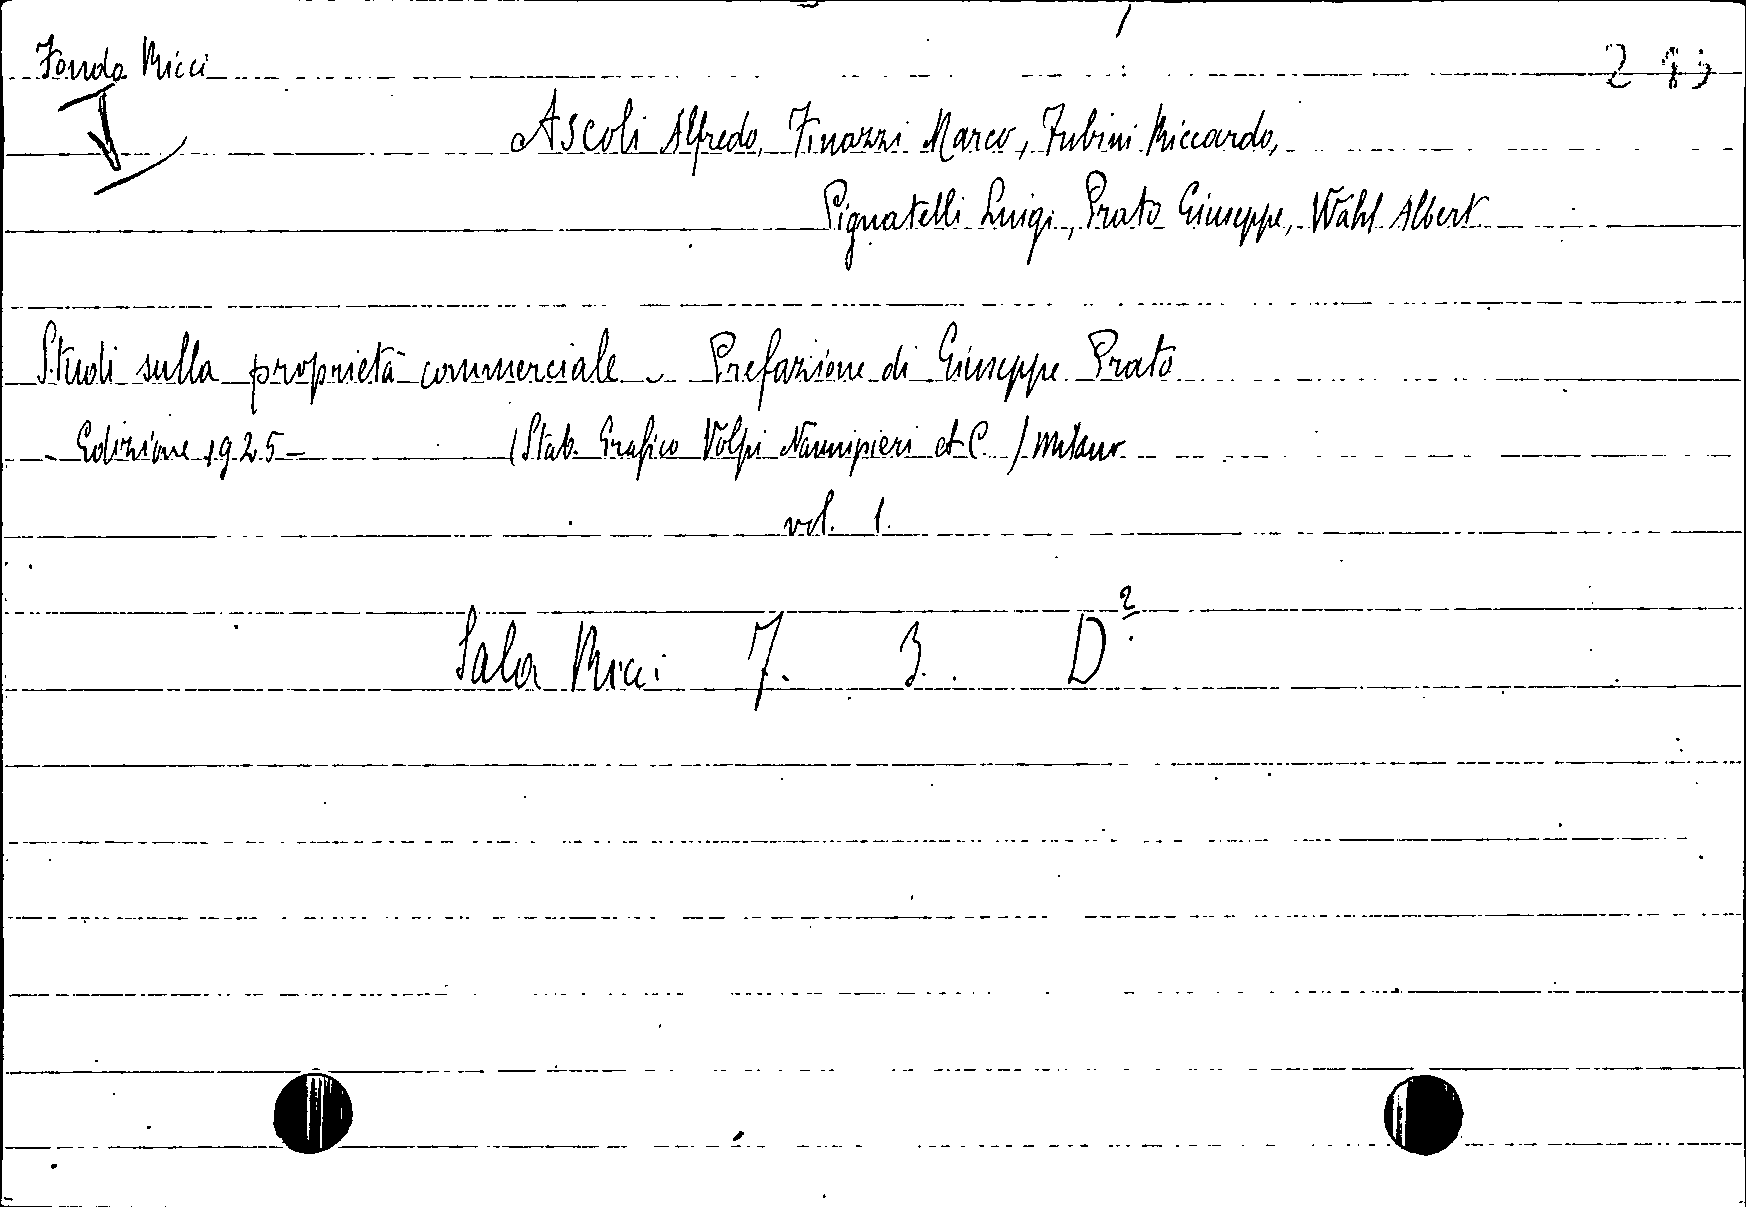 Fondo Ricci
Ascoli Alfredo, Finazzi Marco, Fubini Riccardo,
Pignatelli Luigi, Prato Giuseppe, Wahl Albert
Studi sulla proprietà commerciale - Prefazione di Giuseppe Prato
- Edizione 1925 - (Stab. Grafico Volpi Nannipieri et C.) Milano
vol. 1.
Sala Ricci 7. 3. D²